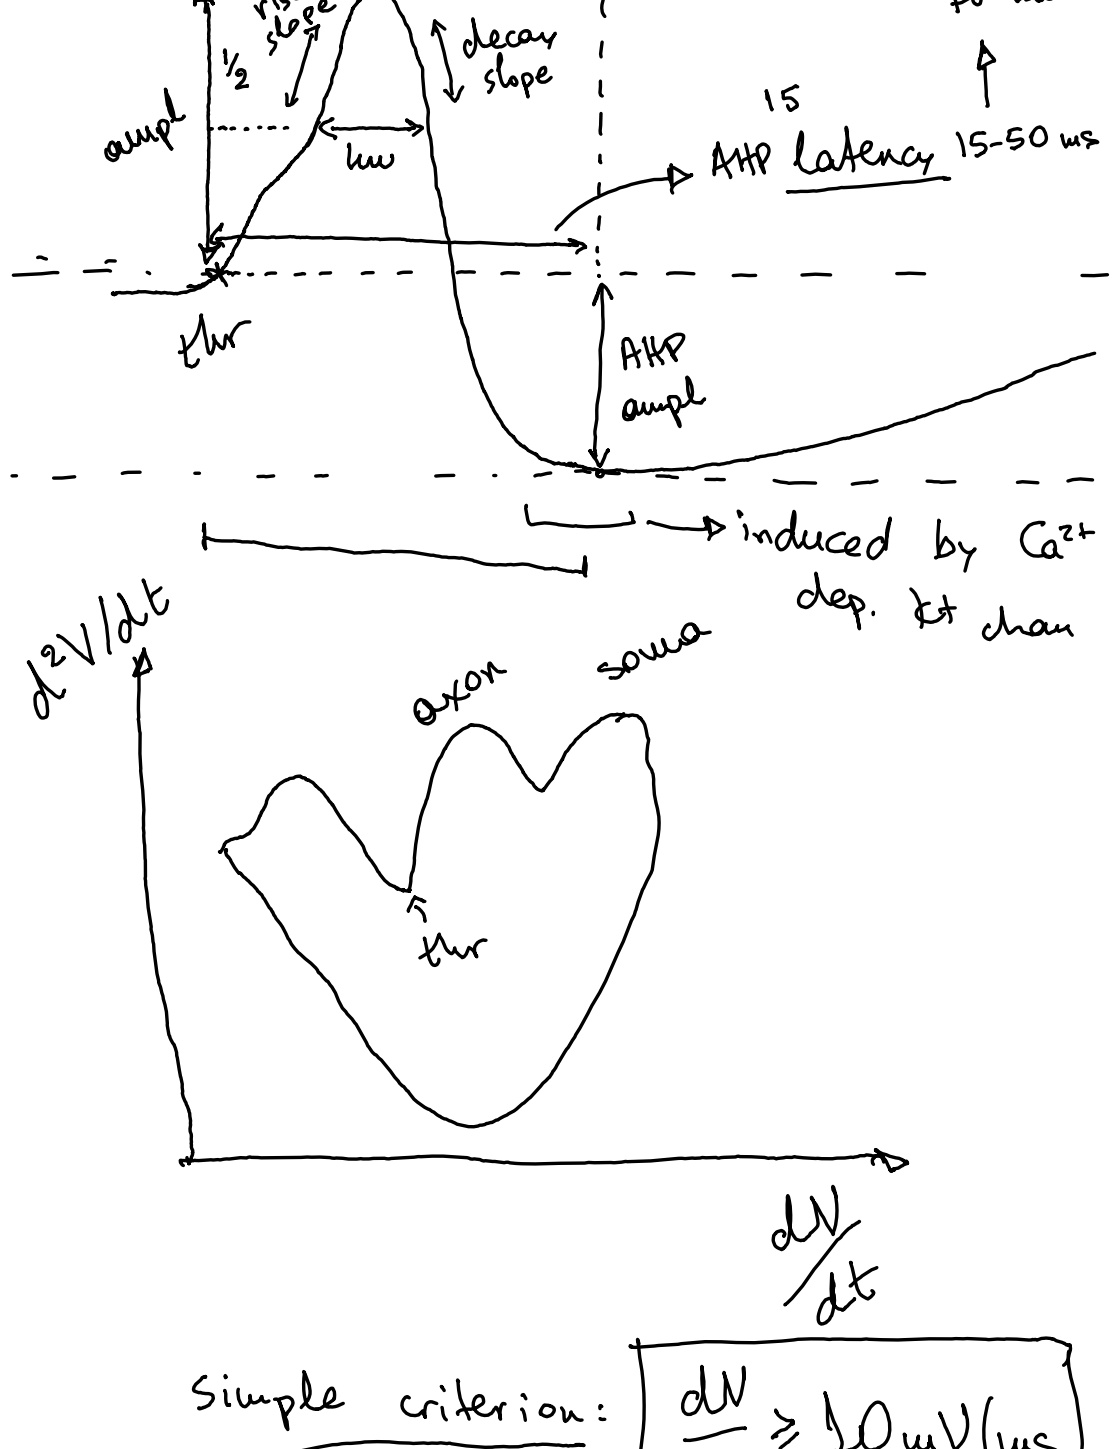 slope
1/2
decay
slope
ampl
hw
15
AHP latency
15-50 ms
thr
AHP
ampl
induced by Ca²⁺
dep. K+ chan
d²V/dt
axon
soma
thr
dV/dt
Simple criterion:
dV
≥ 10 mV/ms